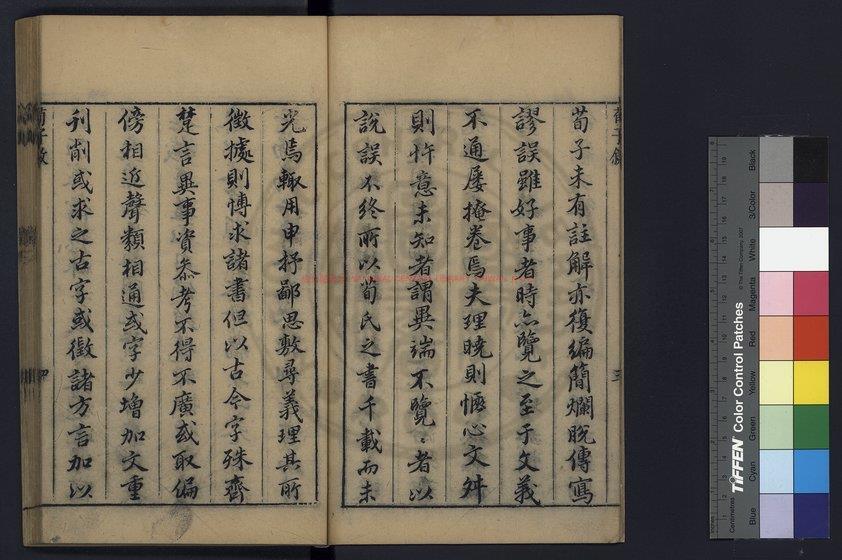 荀子未有註解亦復編簡爛脫傳寫
謬誤雖好事者時亦覽之至于文義
不通屢掩卷焉夫理曉則愜心文舛
則忤意未知者謂異端不覽、者以
說誤不終所以荀氏之書千載而未
光焉輒用申抒鄙思敷尋義理其所
徵據則博求諸書但以古今字殊齊
楚言異事資參考不得不廣或取偏
傍相近聲類相通或字少增加文重
刊削或求之古字或徵諸方言加以
三
四
TIFFEN Color Control Patches
© The Tiffen Company, 2007
Centimetres
Inches
Blue
Cyan
Green
Yellow
Red
Magenta
White
3/Color
Black